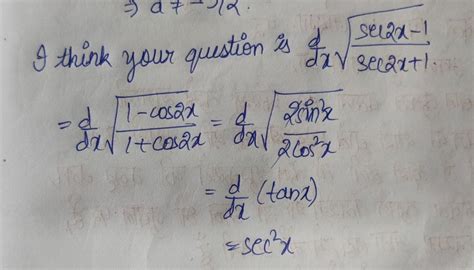 ⇒ a ≠ -5/2.
I think your question is d/dx √((sec2x-1)/(sec2x+1))
= d/dx √((1-cos2x)/(1+cos2x)) = d/dx √((2sin²x)/(2cos²x))
= d/dx (tanx)
= sec²x